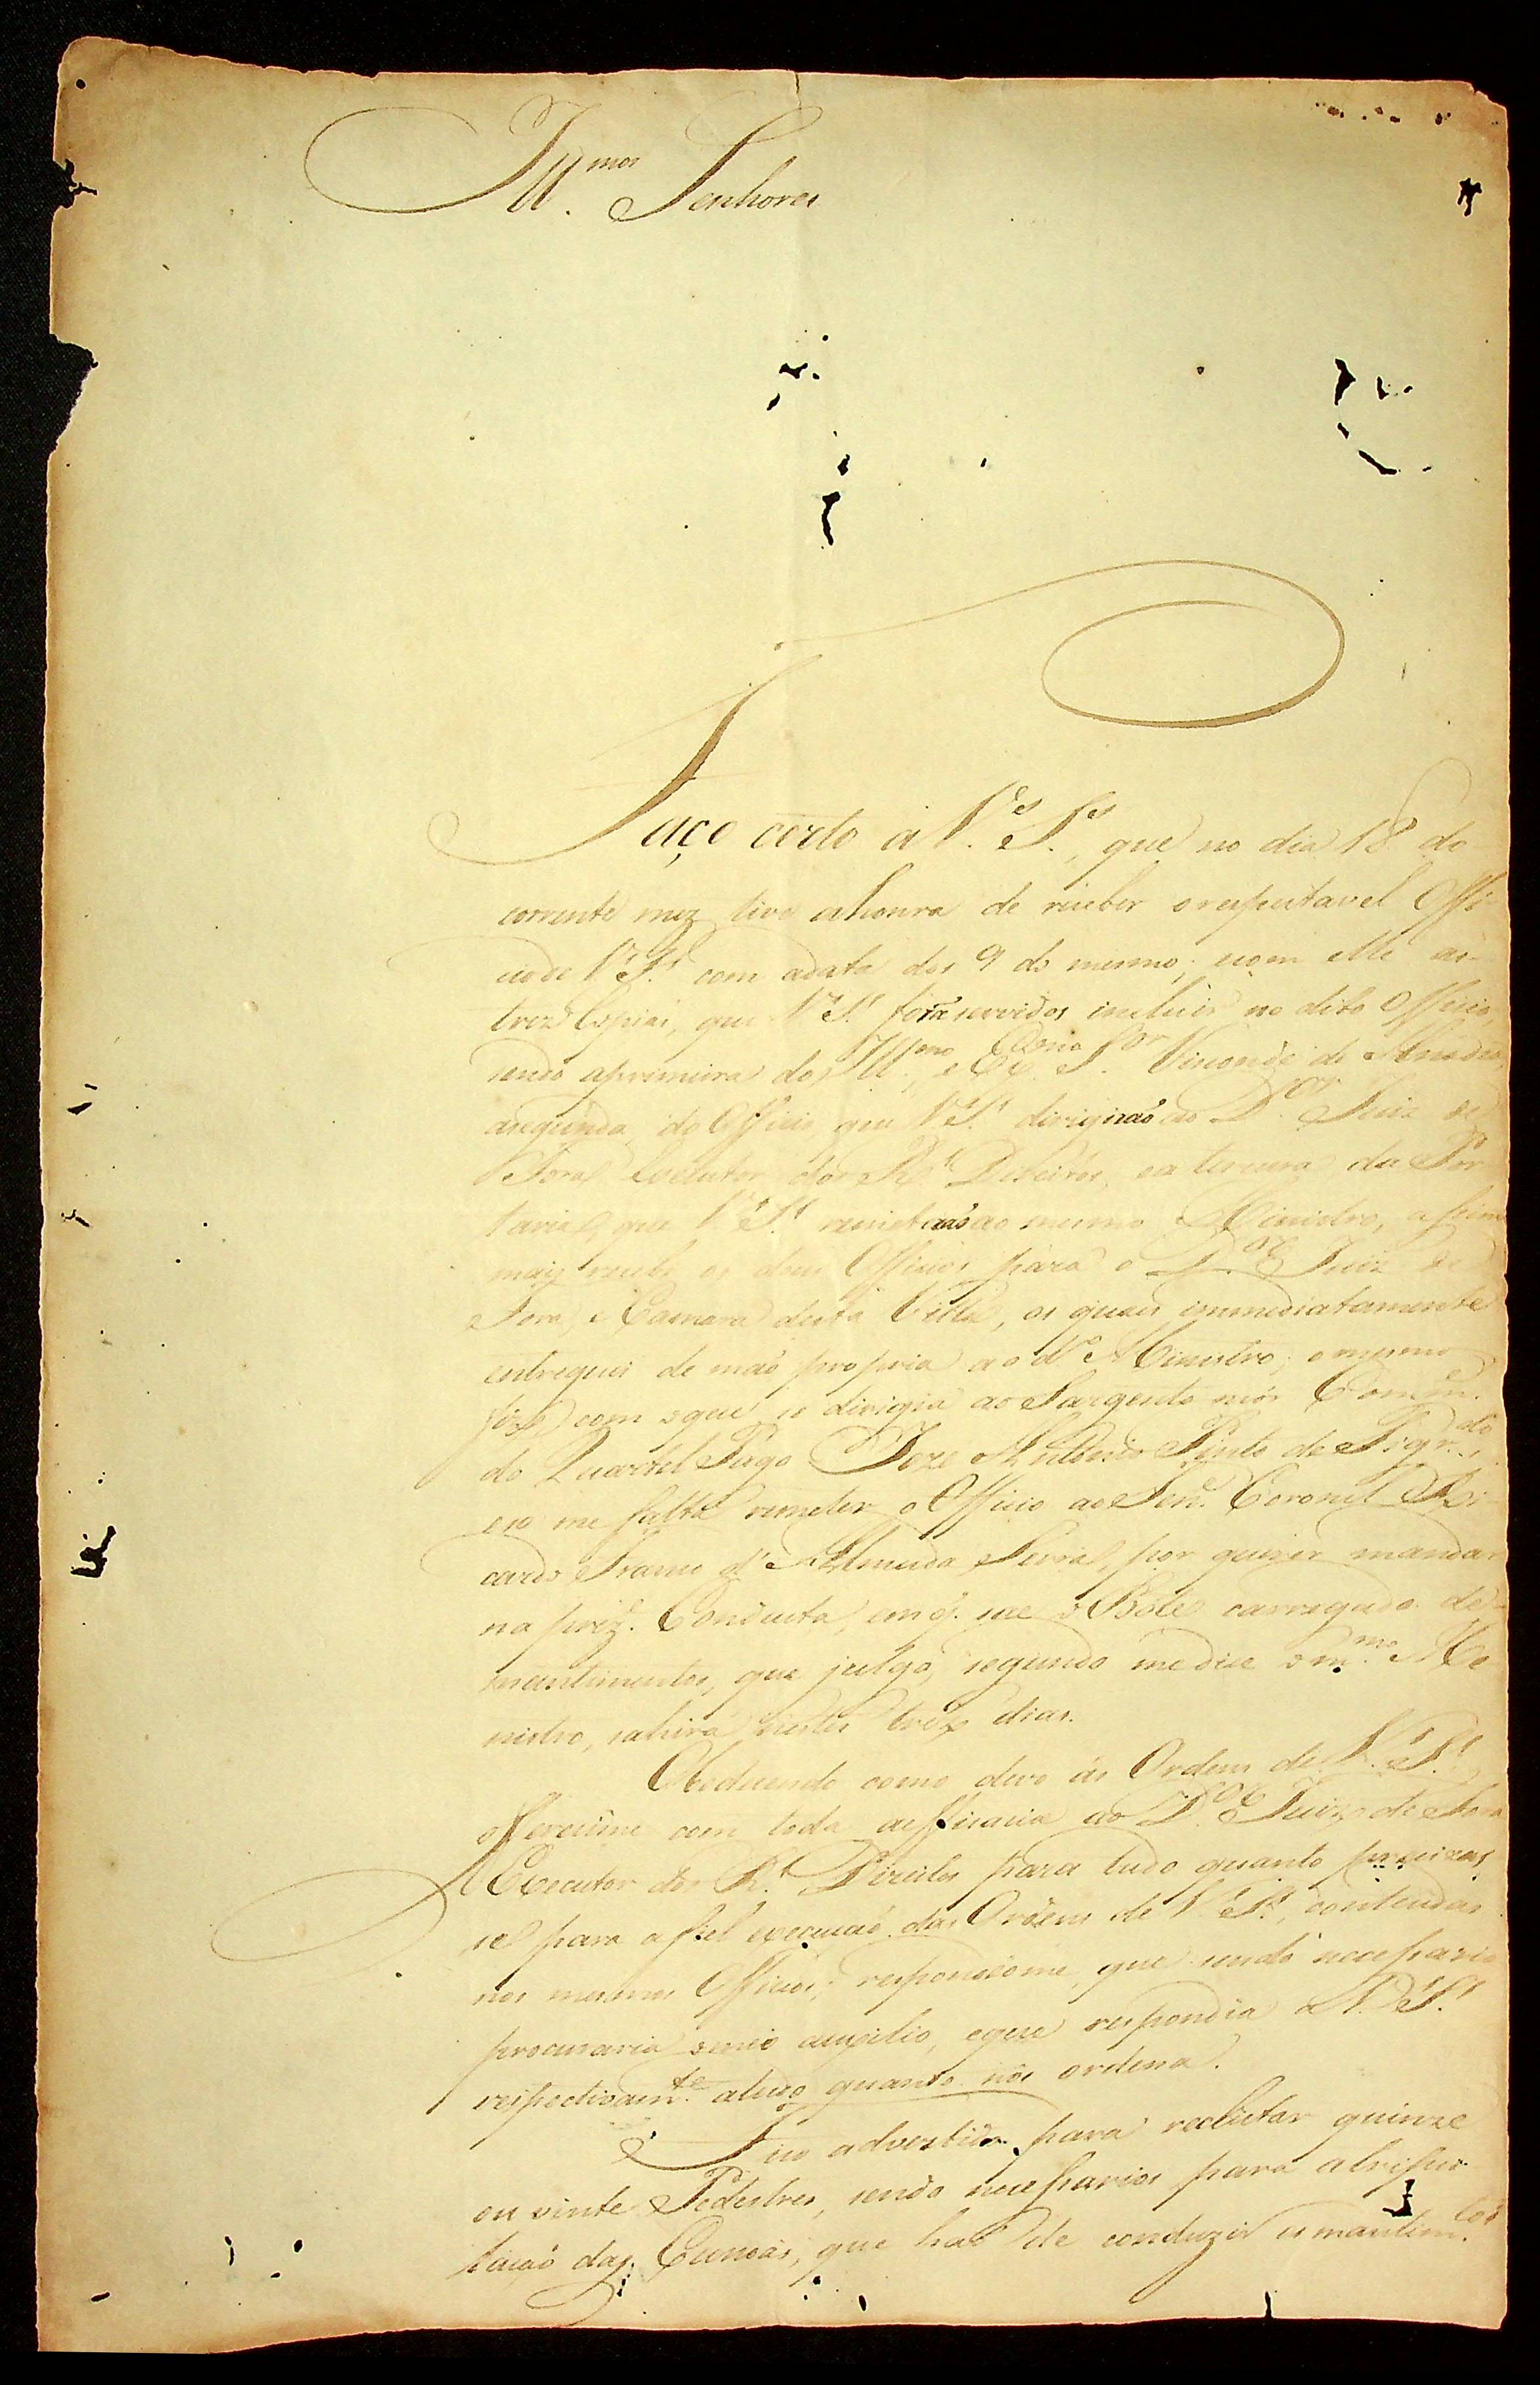 Ill.mos Senhores
Faço certo a V.es S.es, que no dia 18 do
corrente mez tive ahonra de receber orespeitavel Offi-
cio de V.S. com adata dos 9 do mesmo; ecom elle as
trez Copias, que V.S. forão servidos incluir no dito Officio,
sendo aprimeira do Ill.mo, e Ex.mo S.or Visconde de
asegunda, do Officio, que V.S. dirigirão ao D.or Juiz de
Fora Executor dos R.s Direitos, ea terceira da Por-
taria, que V.S. remeterão ao mesmo Ministro, assim
mais recebi os dous Officios para o D.or Juiz de
Fora, e Camara desta Villa, os quaes immediatamente
entreguei de mão propria ao d.o Ministro; omesmo
fiz com oque se dirigia ao Sargento mór Comm.
do Quartel Pago Joze Antonio Pinto de Figr.do,
eso me falta remeter o Officio ao Sen.r Coronel Ri-
cardo Franco d'Almeida Serra, por querer mandar
na prez. Conducta, em q. sae o Bote carregado de
mantimentos, que julgo, segundo medice o m.mo Me-
nistro, sahirá nestes trez dias.
Obedecendo como devo ás Ordens de V.S.
offerecime com toda aefficacia ao D.or Juiz de Fora
Executor dos R.s Direitos para tudo quanto precizas-
se para afiel execução das Ordens de V.S., contendas
nos mesmos Officios; respondeome, que sendo necessario
procuraria omeio auxilio, eque respondia a V.S.
respectivam.te atudo quanto nos ordena.
Fico advertido para reclutar quinze
ou vinte Pedestres, sendo necessarios para
tação das Canoas, que hão de conduzir os mantim.tos